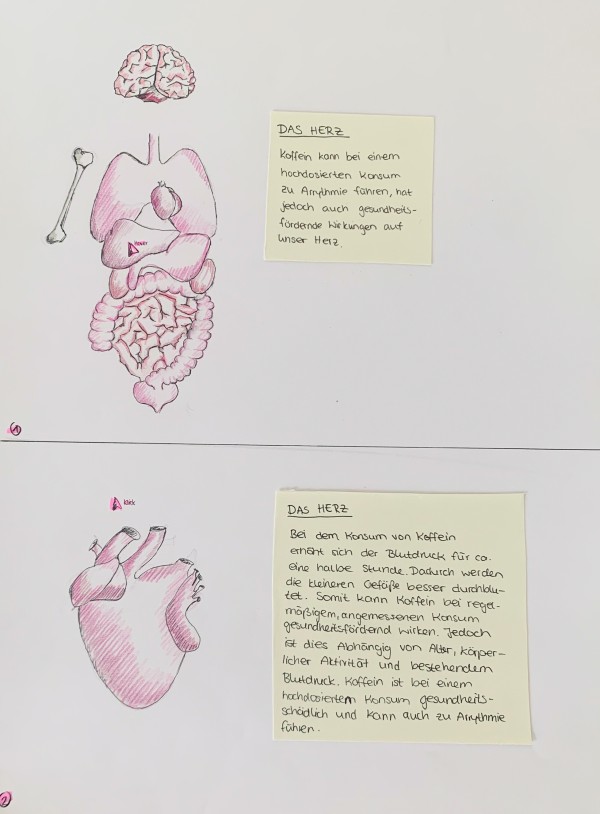 DAS HERZ
Koffein kann bei einem
hochdosierten Konsum
zu Arrythmie führen, hat
jedoch auch gesundheits-
fördernde Wirkungen auf
unser Herz.
HOVER
1
klick
DAS HERZ
Bei dem Konsum von Koffein
erhöht sich der Blutdruck für ca.
eine halbe Stunde. Dadurch werden
die kleineren Gefäße besser durchblu-
tet. Somit kann Koffein bei regel-
mäßigem, angemessenen Konsum
gesundheitsfördernd wirken. Jedoch
ist dies Abhängig von Alter, körper-
licher Aktivität und bestehendem
Blutdruck. Koffein ist bei einem
hochdosiertem Konsum gesundheits-
schädlich und kann auch zu Arrythmie
führen.
2